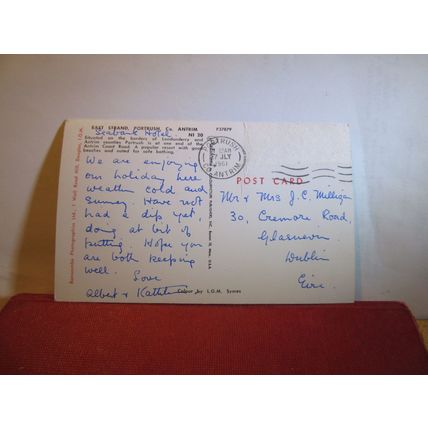 EAST STRAND, PORTRUSH, Co. ANTRIM P37879
NI 20
Situated on the borders of Londonderry and
Antrim counties Portrush is at one end of the
Antrim Coast Road. A popular resort with good
beaches and noted for safe bathing.
Seabank Hotel
We are enjoying
our holiday here
weather cold and
sunny. Have not
had a dip yet,
doing a bit of
putting. Hope you
are both keeping
well.
Love
Albert & Kathleen
Colour by L.G.M. Symes
PORTRUSH
JLY
1961
CO. ANTRIM
POST CARD
Mr & Mrs J.C. Milligan
30, Cremore Road,
Glasnevin
Dublin
Eire.